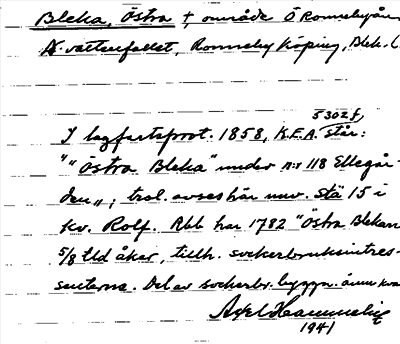 Bleka, Östra † område Ö Ronnebyån
N. vattenfallet, Ronneby Köping, Blek. l.
5302 f,
I lagfartsprot. 1858, K.F.A. står:
"" Östra Bleka" under n:r 118 Ellegår-
den„, trol. avses här nuv. stä 15 i
kv. Rolf. Rbb har 1782 "Östra Blekan
5/8 tld åker, tillh. sockerbruksintres-
senterna. Del av sockerbr. byggn. ännu kva
Axel
1941